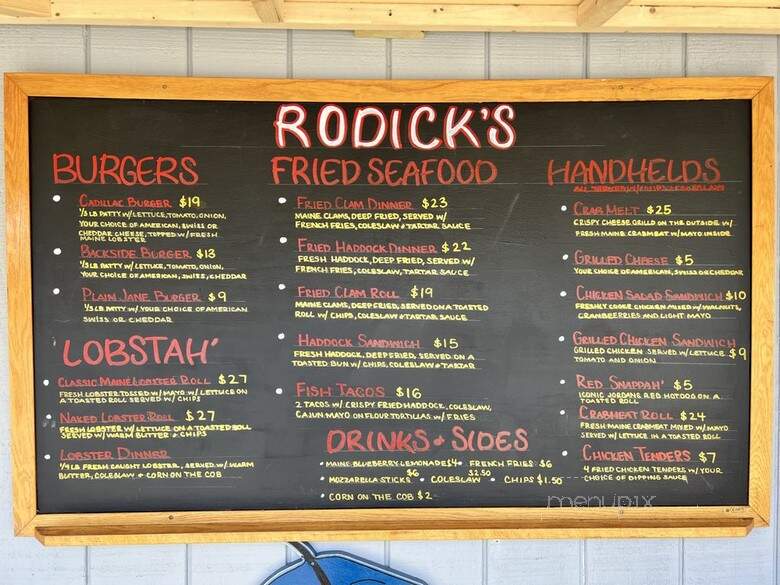 RODICK'S
BURGERS
CADILLAC BURGER $19
1/3 LB PATTY W/ LETTUCE, TOMATO, ONION,
YOUR CHOICE OF AMERICAN, SWISS OR
CHEDDAR CHEESE, TOPPED W/ FRESH
MAINE LOBSTER
BACKSIDE BURGER $13
1/3 LB PATTY W/ LETTUCE, TOMATO, ONION,
YOUR CHOICE OF AMERICAN, SWISS, CHEDDAR
PLAIN JANE BURGER $9
1/3 LB PATTY W/ YOUR CHOICE OF AMERICAN
SWISS OR CHEDDAR
LOBSTAH'
CLASSIC MAINE LOBSTER ROLL $27
FRESH LOBSTER TOSSED W/ MAYO W/ LETTUCE ON
A TOASTED ROLL SERVED W/ CHIPS
NAKED LOBSTER ROLL $27
FRESH LOBSTER W/ LETTUCE ON A TOASTED ROLL
SERVED W/ WARM BUTTER & CHIPS
LOBSTER DINNER
1 1/4 LB FRESH CAUGHT LOBSTER, SERVED W/ WARM
BUTTER, COLESLAW & CORN ON THE COB
FRIED SEAFOOD
FRIED CLAM DINNER $23
MAINE CLAMS, DEEP FRIED, SERVED W/
FRENCH FRIES, COLESLAW & TARTAR SAUCE
FRIED HADDOCK DINNER $22
FRESH HADDOCK, DEEP FRIED, SERVED W/
FRENCH FRIES, COLESLAW, TARTAR SAUCE
FRIED CLAM ROLL $19
MAINE CLAMS, DEEP FRIED, SERVED ON A TOASTED
ROLL W/ CHIPS, COLESLAW & TARTAR SAUCE
HADDOCK SANDWICH $15
FRESH HADDOCK, DEEP FRIED, SERVED ON A
TOASTED BUN W/ CHIPS, COLESLAW & TARTAR
FISH TACOS $16
2 TACOS W/ CRISPY FRIED HADDOCK, COLESLAW,
CAJUN MAYO ON FLOUR TORTILLAS W/ FRIES
DRINKS & SIDES
• MAINE BLUEBERRY LEMONADE $4 • FRENCH FRIES $6
• MOZZARELLA STICKS $6 • COLESLAW $2.50 • CHIPS $1.50
• CORN ON THE COB $2
HANDHELDS
CRAB MELT $25
CRISPY CHEESE GRILLD ON THE OUTSIDE W/
FRESH MAINE CRABMEAT W/ MAYO INSIDE
GRILLED CHEESE $5
YOUR CHOICE OF AMERICAN, SWISS OR CHEDDAR
CHICKEN SALAD SANDWICH $10
FRESHLY COOKE CHICKEN MIXED W/ WALNUTS,
CRANBERRIES AND LIGHT MAYO
GRILLED CHICKEN SANDWICH $9
GRILLED CHICKEN SERVED W/ LETTUCE
TOMATO AND ONION
RED SNAPPAH' $5
ICONIC JORDANS RED HOTDOG ON A
TOASTED ROLL
CRABMEAT ROLL $24
FRESH MAINE CRABMEAT MIXED W/ MAYO
SERVED W/ LETTUCE IN A TOASTED ROLL
CHICKEN TENDERS $7
4 FRIED CHICKEN TENDERS W/ YOUR
CHOICE OF DIPPING SAUCE
menupix